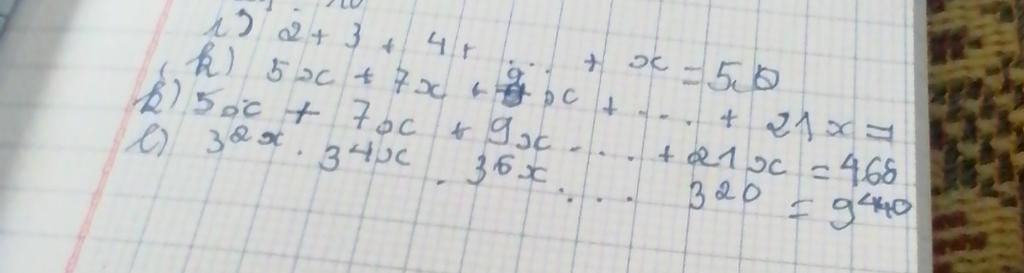 i) 2 + 3 + 4 + ... + x = 500
k) 5x + 7x + 9x + ... + 21x =
k) 5x + 7x + 9x ... + 21x = 468
l) 3^2x . 3^4x . 3^6x . ... 320 = 9^440